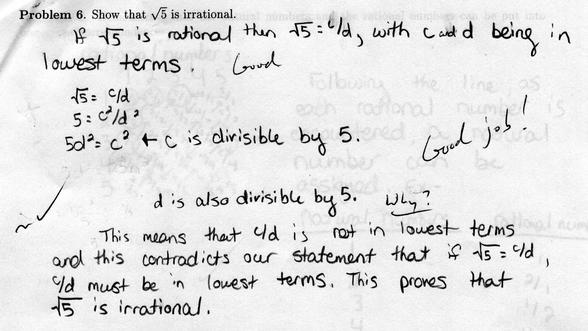 Problem 6. Show that √5 is irrational.
If √5 is rational then √5 = c/d, with c and d being in
lowest terms. Good
√5 = c/d
5 = c²/d²
5d² = c² ← c is divisible by 5. Good job!
d is also divisible by 5. Why?
This means that c/d is not in lowest terms
and this contradicts our statement that if √5 = c/d,
c/d must be in lowest terms. This proves that
√5 is irrational.